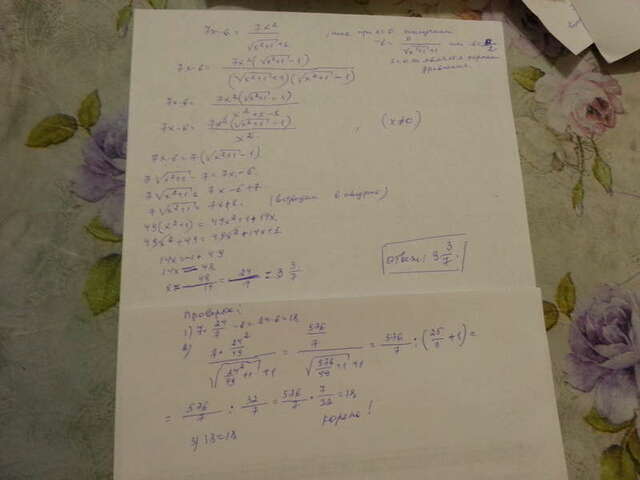 7x-6 = 7x² / √(x²+1)+1
7x-6 = 7x²(√(x²+1) - 1) / (√(x²+1)+1)(√(x²+1) - 1)
7x-6 = 7x²(√(x²+1) - 1) / x²+1-1
7x-6 = 7x²(√(x²+1) - 1) / x² , (x≠0)
7x-6 = 7(√(x²+1) - 1)
7√(x²+1) - 7 = 7x-6
7√(x²+1) = 7x-6+7
7√(x²+1) = 7x+1 (возводим в квадрат)
49(x²+1) = 49x²+1+14x
49x²+49 = 49x²+14x+1
14x = -1+49
14x = 48
x = 48/14 = 24/7 = 3 3/7
Ответ: 3 3/7.
Проверка:
1) 7· 24/7 - 6 = 24-6=18
2) 7· 24²/49 / √(24²/49 +1) +1 = 576/7 / √(576/49 +1) +1 = 576/7 : (25/7 +1) =
= 576/7 : 32/7 = 576/7 · 7/32 = 18
3) 18=18 корень!